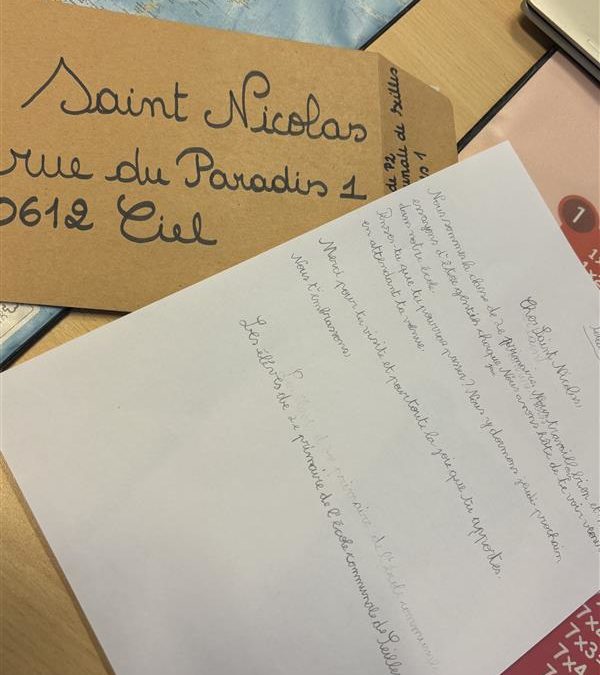 Saint Nicolas
rue du Paradis 1
0612 Ciel
de P2
de Seilles
1
Cher Saint Nicolas,
Nous sommes la classe de 2e primaire. Nous travaillons bien et
essayons d'être gentils chaque jour. Nous avons hâte de te voir venir
dans notre école.
Penses-tu que tu pourras passer? Nous y dormons jeudi prochain
en attendant ta venue.
Merci pour ta visite et pour toute la joie que tu apportes.
Nous t'embrassons,
Les élèves de 2e primaire de l'école communale de Seilles
1
7x3
7x4